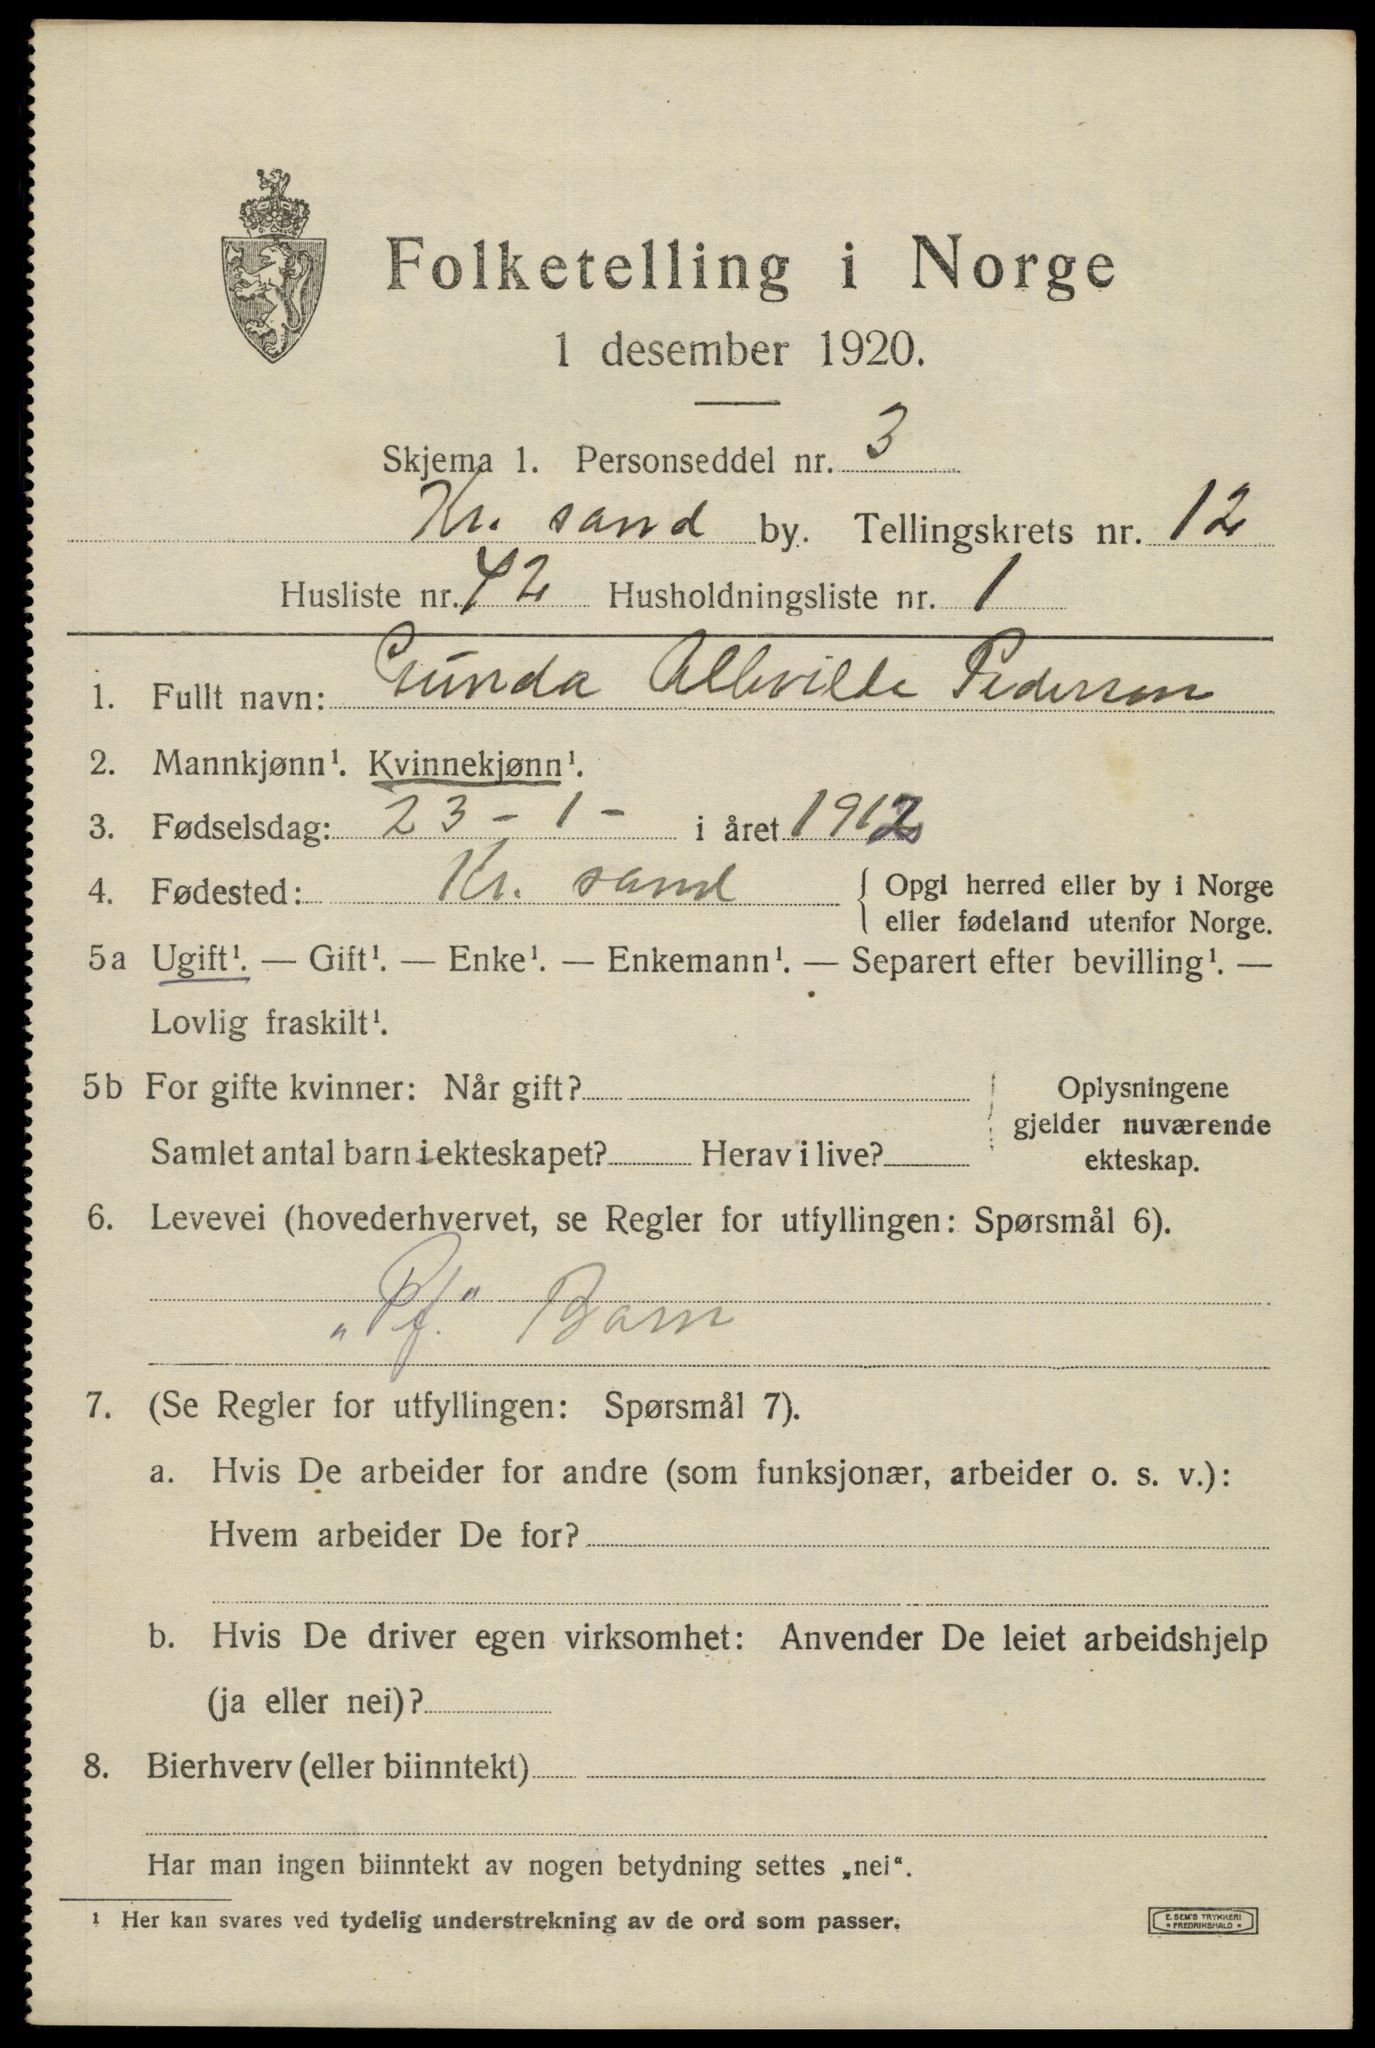 Folketelling i Norge
1 desember 1920.
Skjema 1. Personseddel nr. 3
Kr. sand by. Tellingskrets nr. 12
Husliste nr. 42 Husholdningsliste nr. 1
1. Fullt navn: Gunda Alhvilde Pedersen
2. Mannkjønn¹. Kvinnekjønn¹.
3. Fødselsdag: 23 - 1 - i året 1912
4. Fødested: Kr. sand { Opgi herred eller by i Norge
eller fødeland utenfor Norge.
5a Ugift¹. — Gift¹. — Enke¹. — Enkemann¹. — Separert efter bevilling¹. —
Lovlig fraskilt¹.
5b For gifte kvinner: Når gift? Oplysningene
gjelder nuværende
Samlet antal barn i ekteskapet? Herav i live? ekteskap.
6. Levevei (hovederhvervet, se Regler for utfyllingen: Spørsmål 6).
„Pf.“ Barn
7. (Se Regler for utfyllingen: Spørsmål 7).
a. Hvis De arbeider for andre (som funksjonær, arbeider o. s. v.):
Hvem arbeider De for?
b. Hvis De driver egen virksomhet: Anvender De leiet arbeidshjelp
(ja eller nei)?
8. Bierhverv (eller biinntekt)
Har man ingen biinntekt av nogen betydning settes „nei“.
¹ Her kan svares ved tydelig understrekning av de ord som passer.
E. SEM'S TRYKKERI
• FREDRIKSHALD •